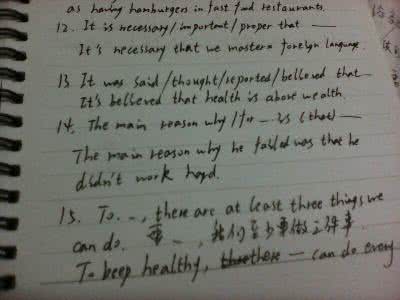 as having hamburgers in fast food restaurants.
12. It is necessary/important/proper that —
It's necessary that we master a foreign language.
13 It was said/thought/reported/believed that
It's believed that health is above wealth.
14. The main reason why/for ... is (that) —
The main reason why he failed was that he
didn't work hard.
15. To..., there are at least three things we
can do. 要..., 我们至少要做三件事
To keep healthy, — can do every